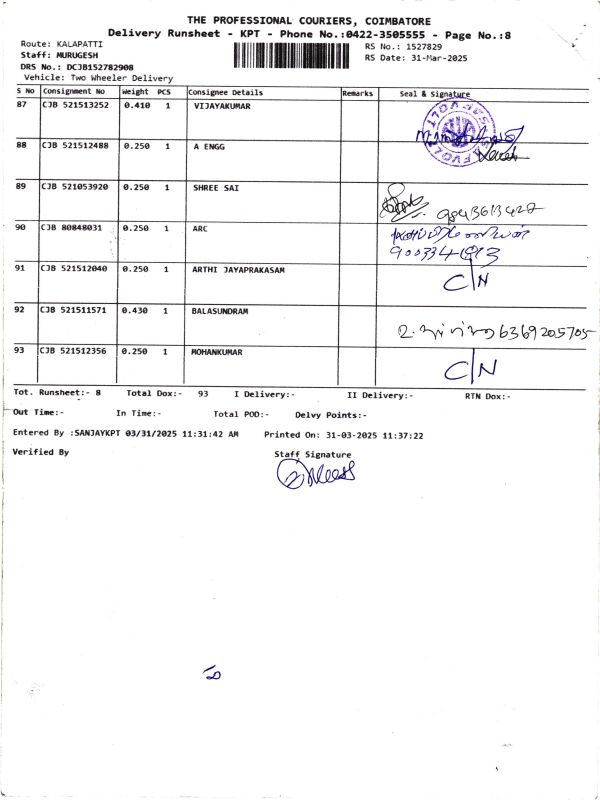 THE PROFESSIONAL COURIERS, COIMBATORE
Delivery Runsheet - KPT - Phone No.:0422-3505555 - Page No.:8
Route: KALAPATTI RS No.: 1527829
Staff: MURUGESH RS Date: 31-Mar-2025
DRS No.: DCJB152782908
Vehicle: Two Wheeler Delivery
S No Consignment No Weight PCS Consignee Details Remarks Seal & Signature
87 CJB 521513252 0.410 1 VIJAYAKUMAR
88 CJB 521512488 0.250 1 A ENGG
89 CJB 521053920 0.250 1 SHREE SAI
90 CJB 80848031 0.250 1 ARC
91 CJB 521512040 0.250 1 ARTHI JAYAPRAKASAM C/N
92 CJB 521511571 0.430 1 BALASUNDRAM 6369205705
93 CJB 521512356 0.250 1 MOHANKUMAR C/N
Tot. Runsheet:- 8 Total Dox:- 93 I Delivery:- II Delivery:- RTN Dox:-
Out Time:- In Time:- Total POD:- Delvy Points:-
Entered By :SANJAYKPT 03/31/2025 11:31:42 AM Printed On: 31-03-2025 11:37:22
Verified By Staff Signature